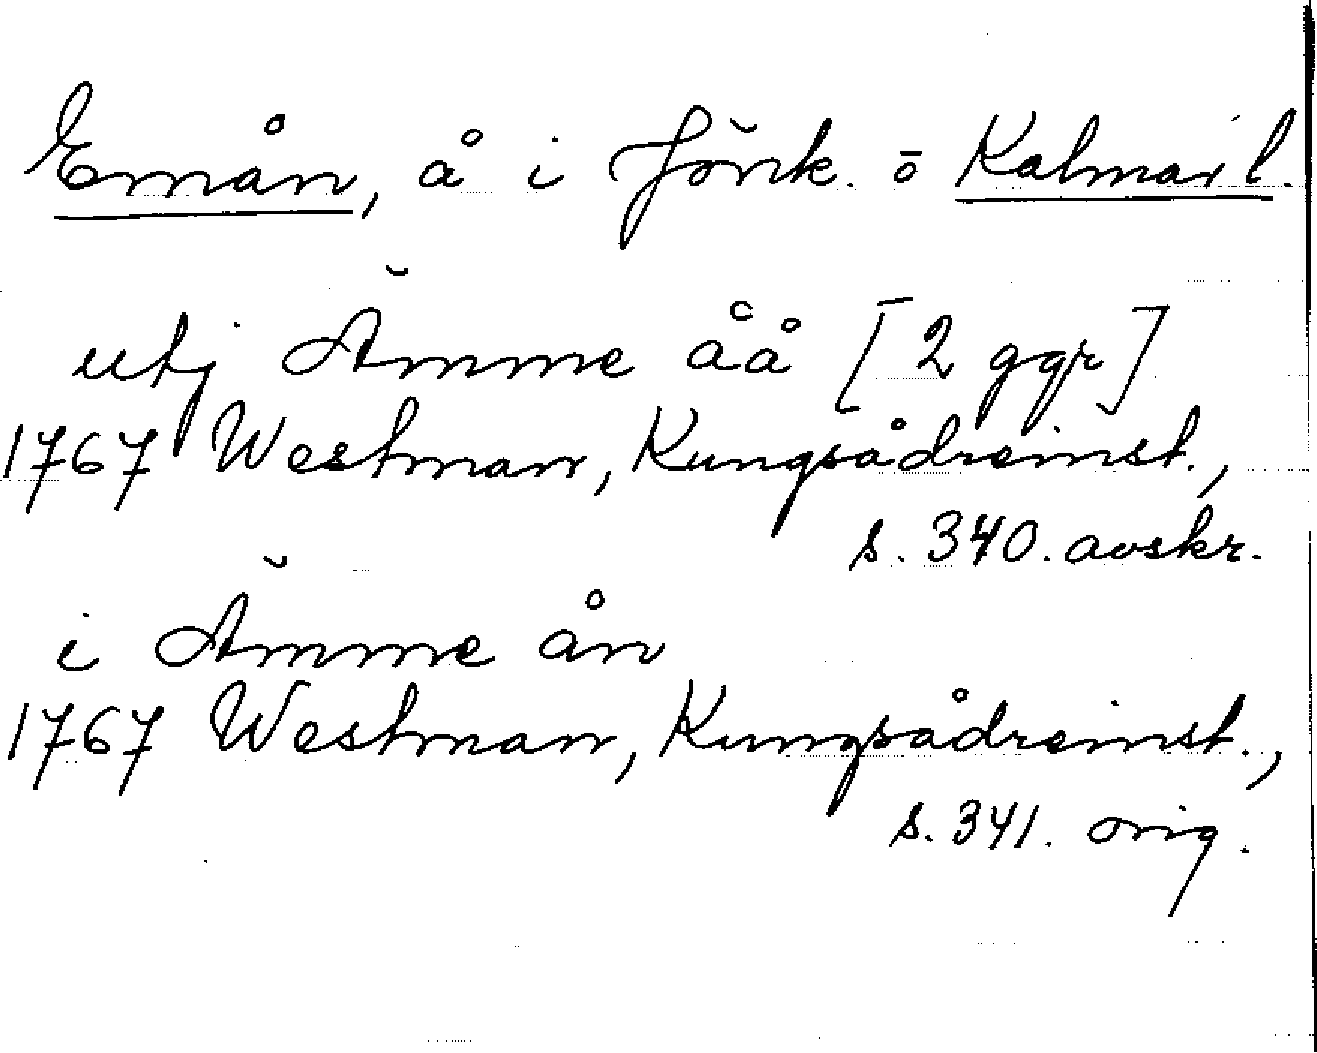 Emån, å i Jönk. o Kalmar l.
utj Ämme åå [2 ggr]
1767 Westman, Kungsådreinst.,
s. 340. avskr.
i Ämme ån
1767 Westman, Kungsådreinst.,
s. 341. orig.